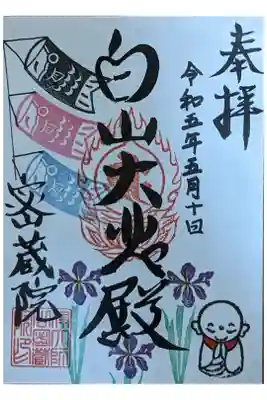 奉拝
令和五年五月十日
白山大師殿
密蔵院